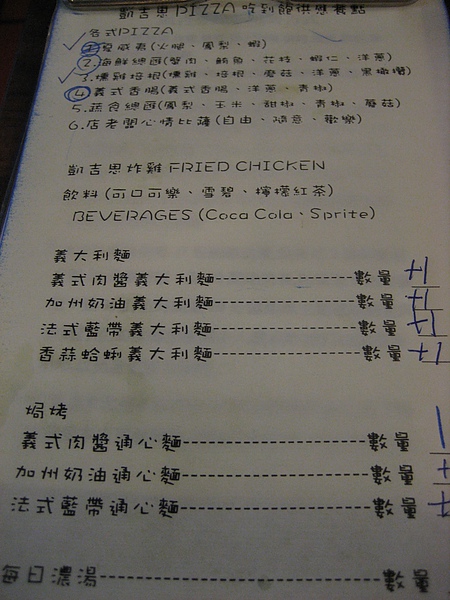 凱吉思 PIZZA 吃到飽供應餐點
各式PIZZA
1.夏威夷(火腿、鳳梨、蝦)
2.海鮮總匯(蟹肉、鮪魚、花枝、蝦仁、洋蔥)
3.燻雞培根(燻雞、培根、蘑菇、洋蔥、黑橄欖)
4.義式香腸(義式香腸、洋蔥、青椒)
5.蔬食總匯(鳳梨、玉米、甜椒、青椒、蘑菇)
6.店老闆心情比薩(自由、隨意、歡樂)
凱吉思炸雞 FRIED CHICKEN
飲料(可口可樂、雪碧、檸檬紅茶)
BEVERAGES (Coca Cola、Sprite)
義大利麵
義式肉醬義大利麵----------------數量 +1
加州奶油義大利麵----------------數量 +1
法式藍帶義大利麵----------------數量 +1
香蒜蛤蜊義大利麵----------------數量 +1
焗烤
義式肉醬通心麵--------------------數量
加州奶油通心麵--------------------數量
法式藍帶通心麵--------------------數量
每日濃湯----------------------------數量